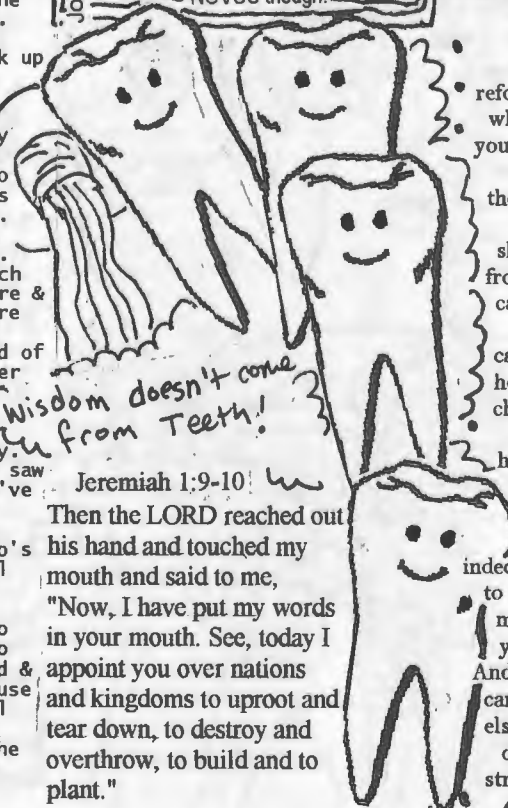 NOVUS though!
he
k up
y
o
s
ch
re &
re
d of
er
y.
saw
've
o's
l
o
o
d &
use
l
he
Wisdom doesn't come
from Teeth!
Jeremiah 1:9-10
Then the LORD reached out
his hand and touched my
mouth and said to me,
"Now, I have put my words
in your mouth. See, today I
appoint you over nations
and kingdoms to uproot and
tear down, to destroy and
overthrow, to build and to
plant."
refo
wh
you
the
sh
fro
ca
ca
he
ch
h
indeed
to
m
y
And
can
els
c
str